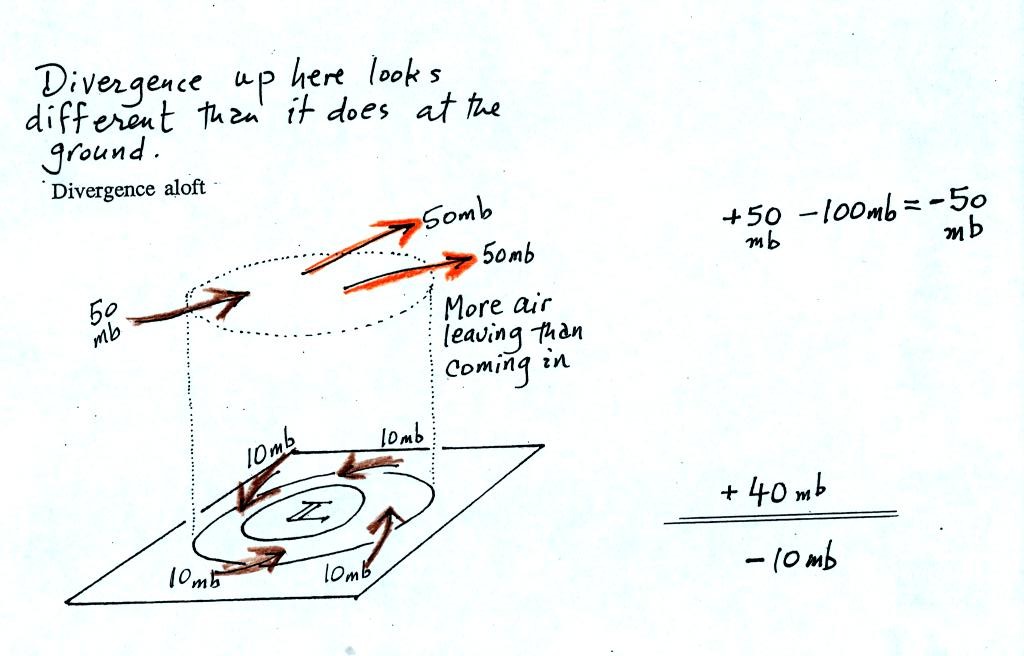 Divergence up here looks
different than it does at the
ground.
Divergence aloft
50mb
50mb
50
mb
More air
leaving than
coming in
+50 mb -100mb = -50 mb
10mb
10mb
L
10mb
10mb
+40mb
-10mb